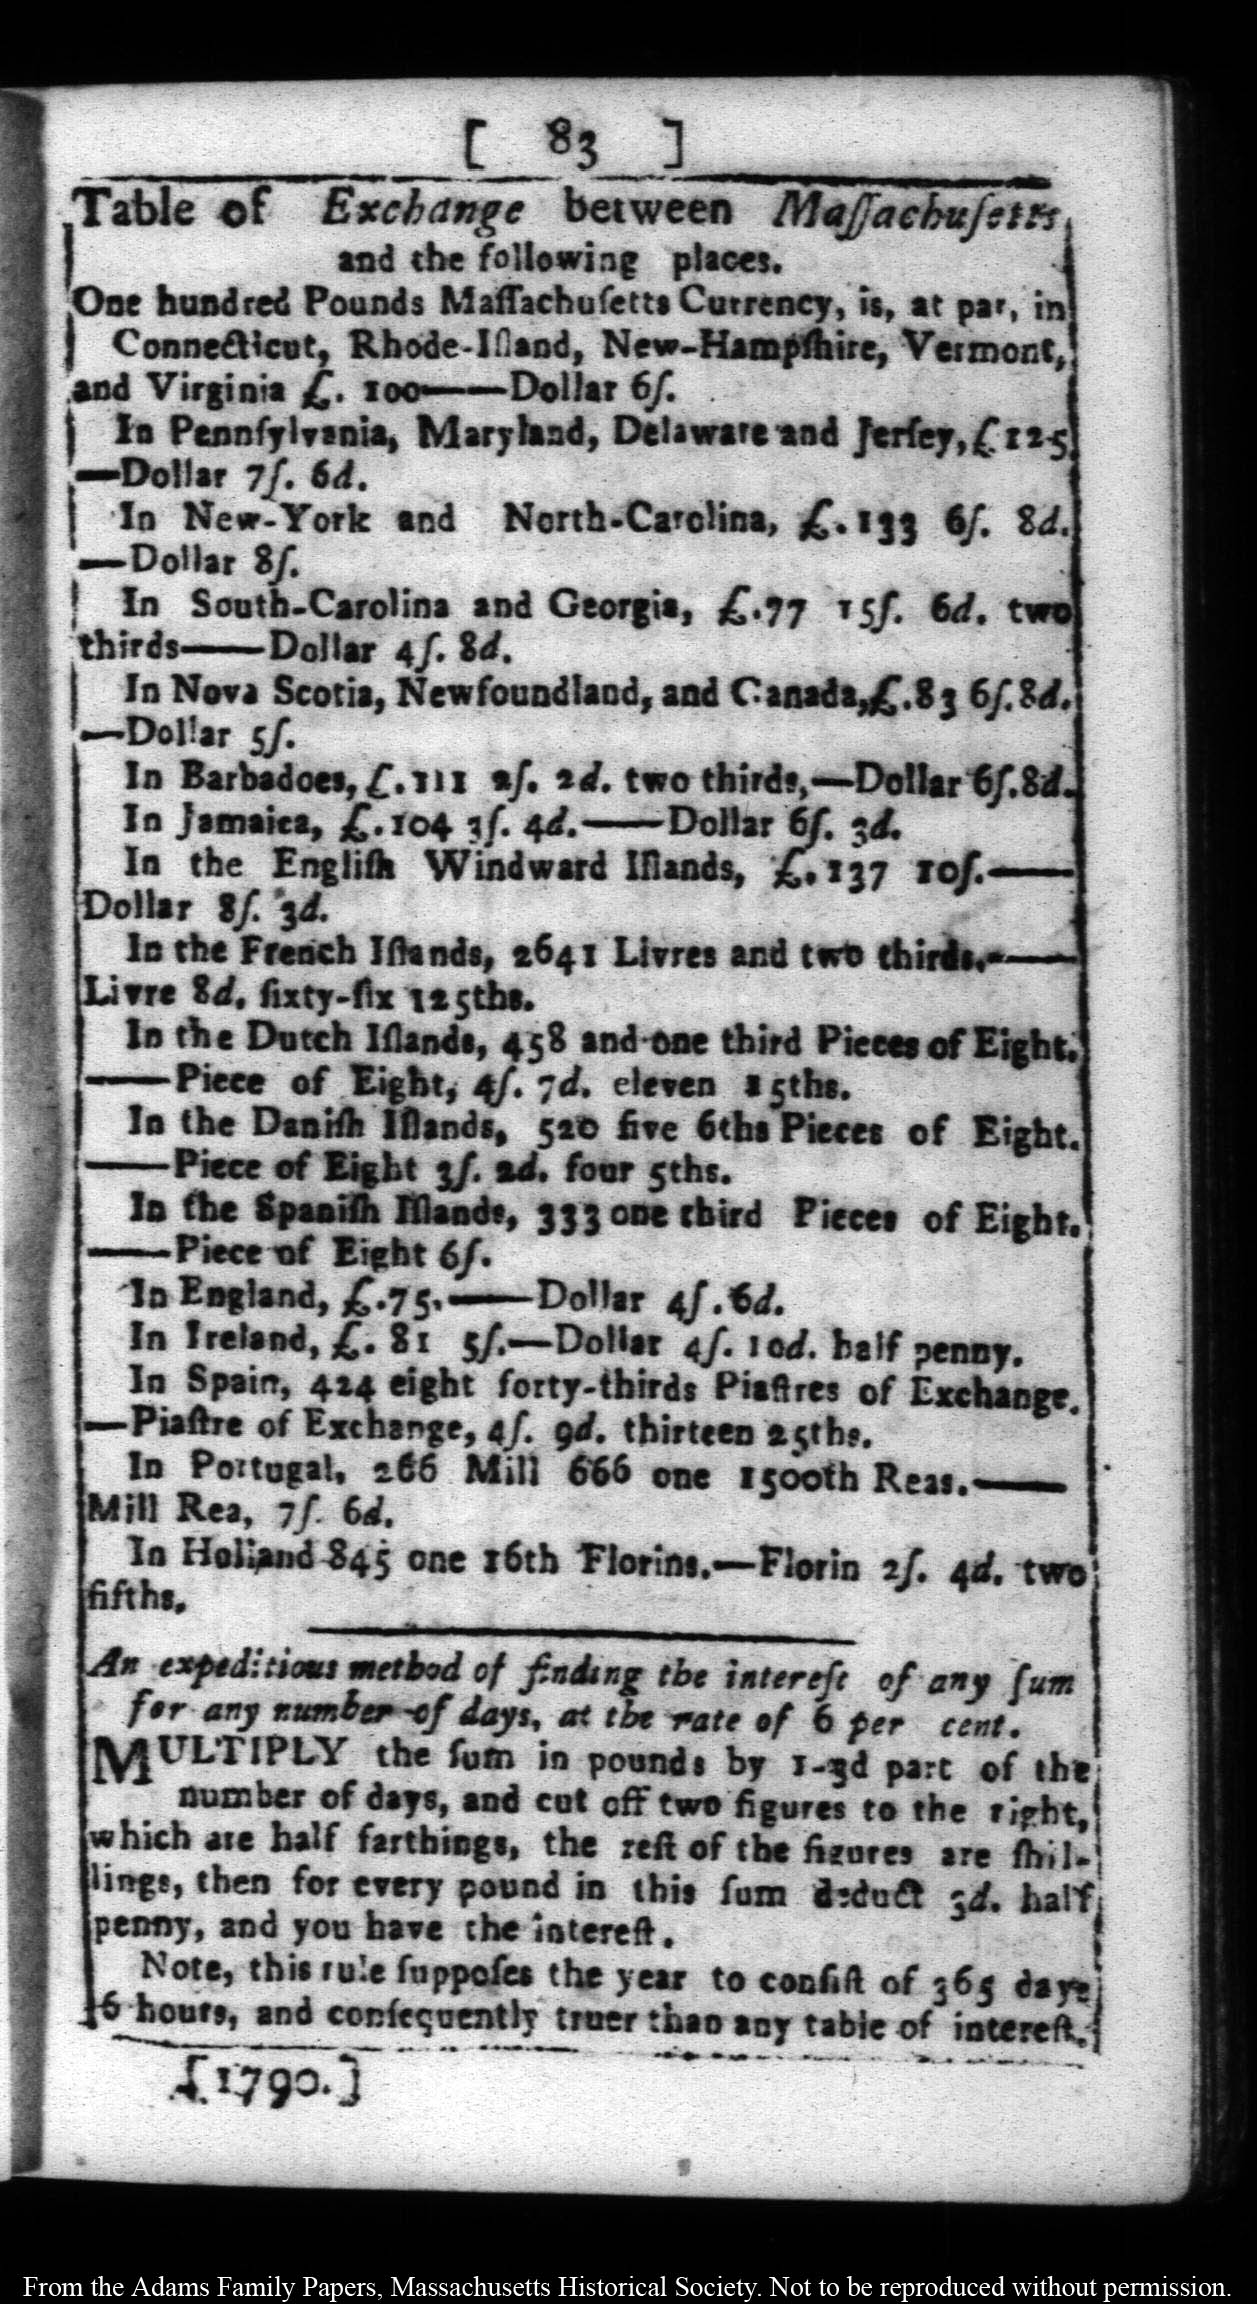 [ 83 ]
Table of Exchange between Maſſachuſetts
and the following places.
One hundred Pounds Maſſachuſetts Currency, is, at par, in
Connecticut, Rhode-Iſland, New-Hampſhire, Vermont,
and Virginia £. 100——Dollar 6ſ.
In Pennſylvania, Maryland, Delaware and Jerſey, £.125
—Dollar 7ſ. 6d.
In New-York and North-Carolina, £.133 6ſ. 8d.
—Dollar 8ſ.
In South-Carolina and Georgia, £.77 15ſ. 6d. two
thirds——Dollar 4ſ. 8d.
In Nova Scotia, Newfoundland, and Canada,£.83 6ſ.8d.
—Dollar 5ſ.
In Barbadoes, £.111 2ſ. 2d. two thirds,—Dollar 6ſ.8d.
In Jamaica, £.104 3ſ. 4d.——Dollar 6ſ. 3d.
In the Engliſh Windward Iſlands, £.137 10ſ.——
Dollar 8ſ. 3d.
In the French Iſlands, 2641 Livres and two thirds.——
Livre 8d. ſixty-ſix 125ths.
In the Dutch Iſlands, 458 and one third Pieces of Eight.
——Piece of Eight, 4ſ. 7d. eleven 15ths.
In the Daniſh Iſlands, 520 five 6ths Pieces of Eight.
——Piece of Eight 3ſ. 2d. four 5ths.
In the Spaniſh Iſlands, 333 one third Pieces of Eight.
——Piece of Eight 6ſ.
In England, £.75.——Dollar 4ſ.6d.
In Ireland, £. 81 5ſ.—Dollar 4ſ. 10d. half penny.
In Spain, 424 eight forty-thirds Piaſtres of Exchange.
—Piaſtre of Exchange, 4ſ. 9d. thirteen 25ths.
In Portugal, 266 Mill 666 one 1500th Reas.——
Mill Rea, 7ſ. 6d.
In Holland 845 one 16th Florins.—Florin 2ſ. 4d. two
fifths.
An expeditious method of finding the intereſt of any ſum
for any number of days, at the rate of 6 per cent.
MULTIPLY the ſum in pounds by 1-3d part of the
number of days, and cut off two figures to the right,
which are half farthings, the reſt of the figures are ſhil-
lings, then for every pound in this ſum deduct 3d. half
penny, and you have the intereſt.
Note, this rule ſuppoſes the year to conſiſt of 365 days
6 hours, and conſequently truer than any table of intereſt.
[1790.]
From the Adams Family Papers, Massachusetts Historical Society. Not to be reproduced without permission.